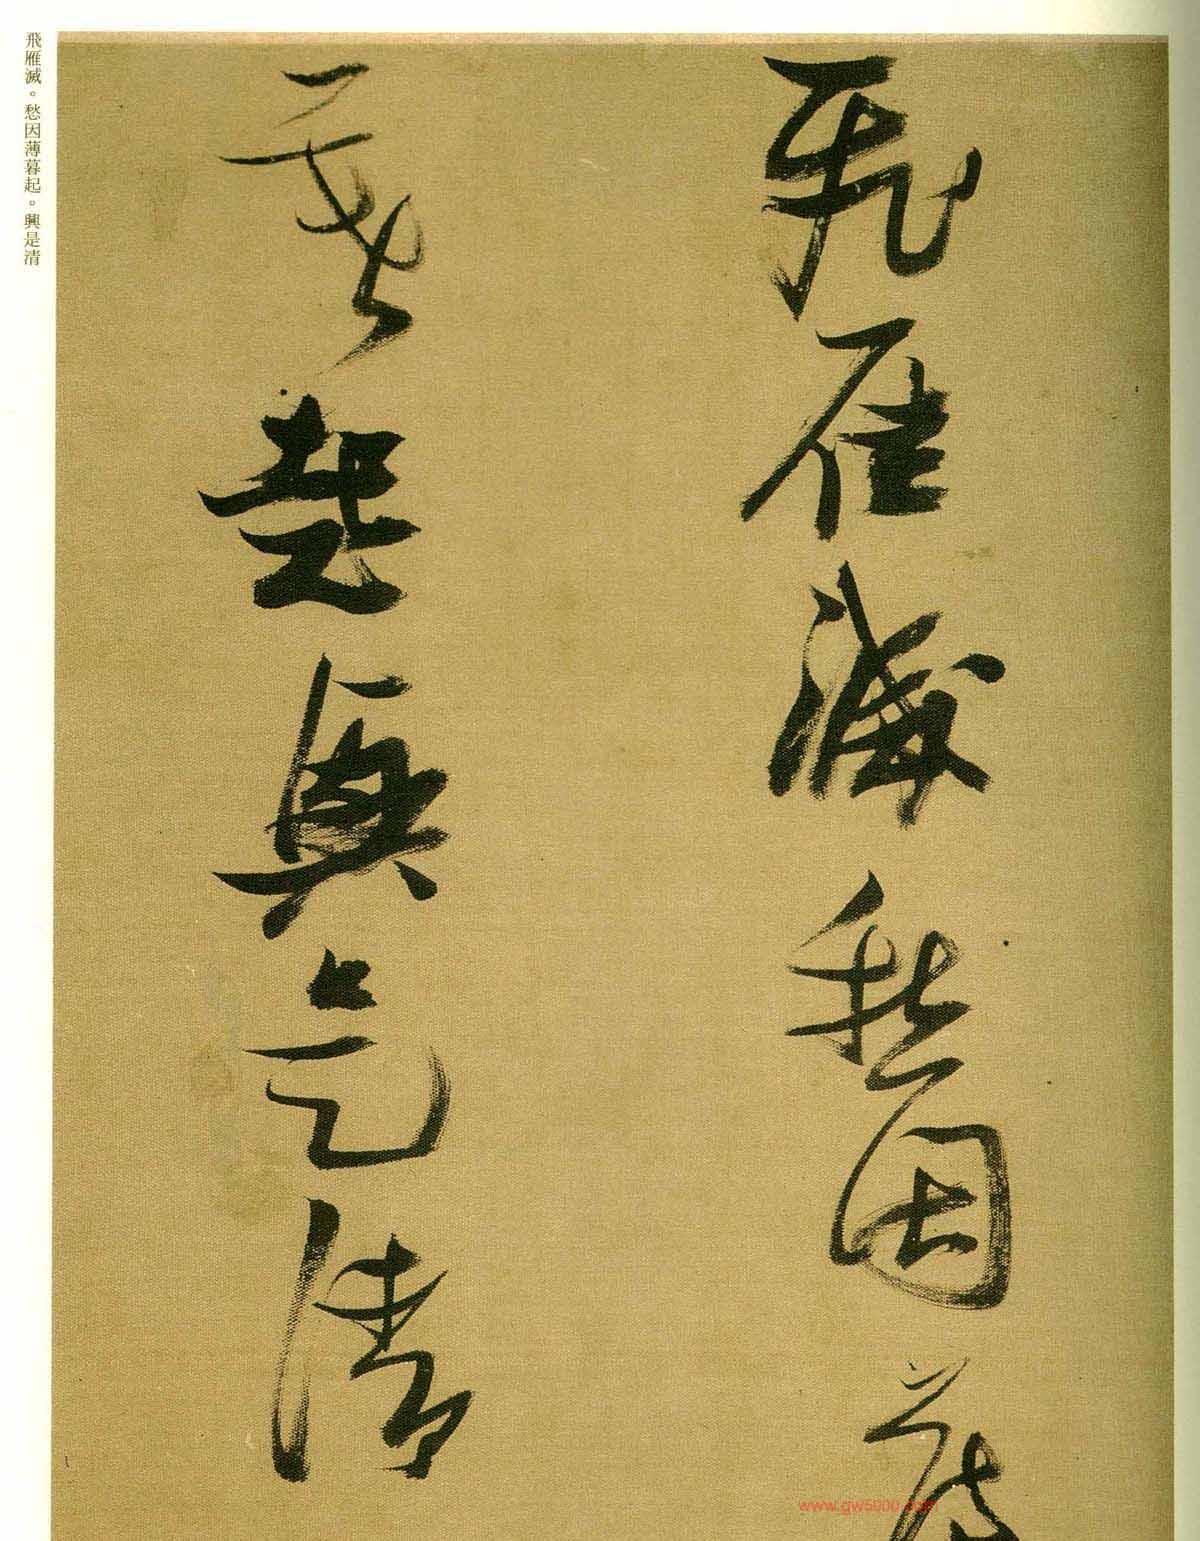 飛雁滅愁因薄
暮起興是清
飛雁滅。愁因薄暮起。興是清
www.gw5000.com